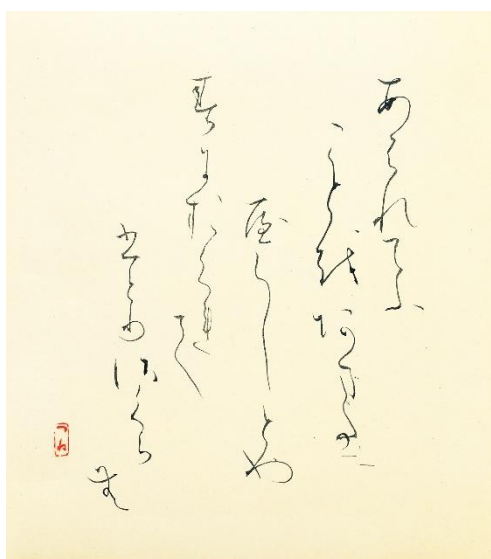 あはれてふ
ことをあまたに
やらしとや
春におくれて
ひとりさくら
む
つね